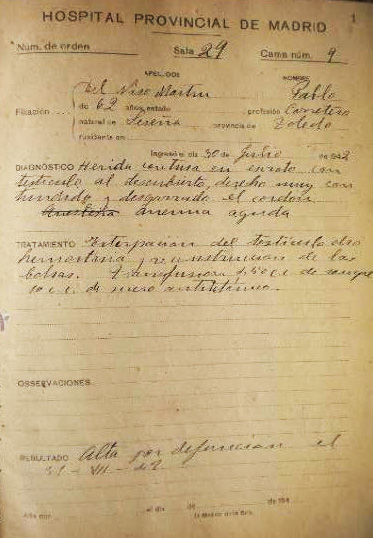 1
HOSPITAL PROVINCIAL DE MADRID
Núm. de orden Sala 29 Cama núm. 9
APELLIDOS NOMBRE
Del Viso Martin Pablo
Filiación de 62 años, estado profesión Carretero
natural de Seseña provincia de Toledo
residente en
Ingresó el día 30 de Julio de 1942
DIAGNÓSTICO Herida contusa en escroto con
testiculo al descubierto, derecho muy con
tundido y desgarrado el cordon.
anemia aguda
TRATAMIENTO Exterpacion del testiculo dro
hemostasia y reconstruccion de las
bolsas. transfusion de sangre
10 c.c. de suero antitetanico.
OBSERVACIONES
RESULTADO Alta por defuncion el
31-VII-42
de 194
el día de